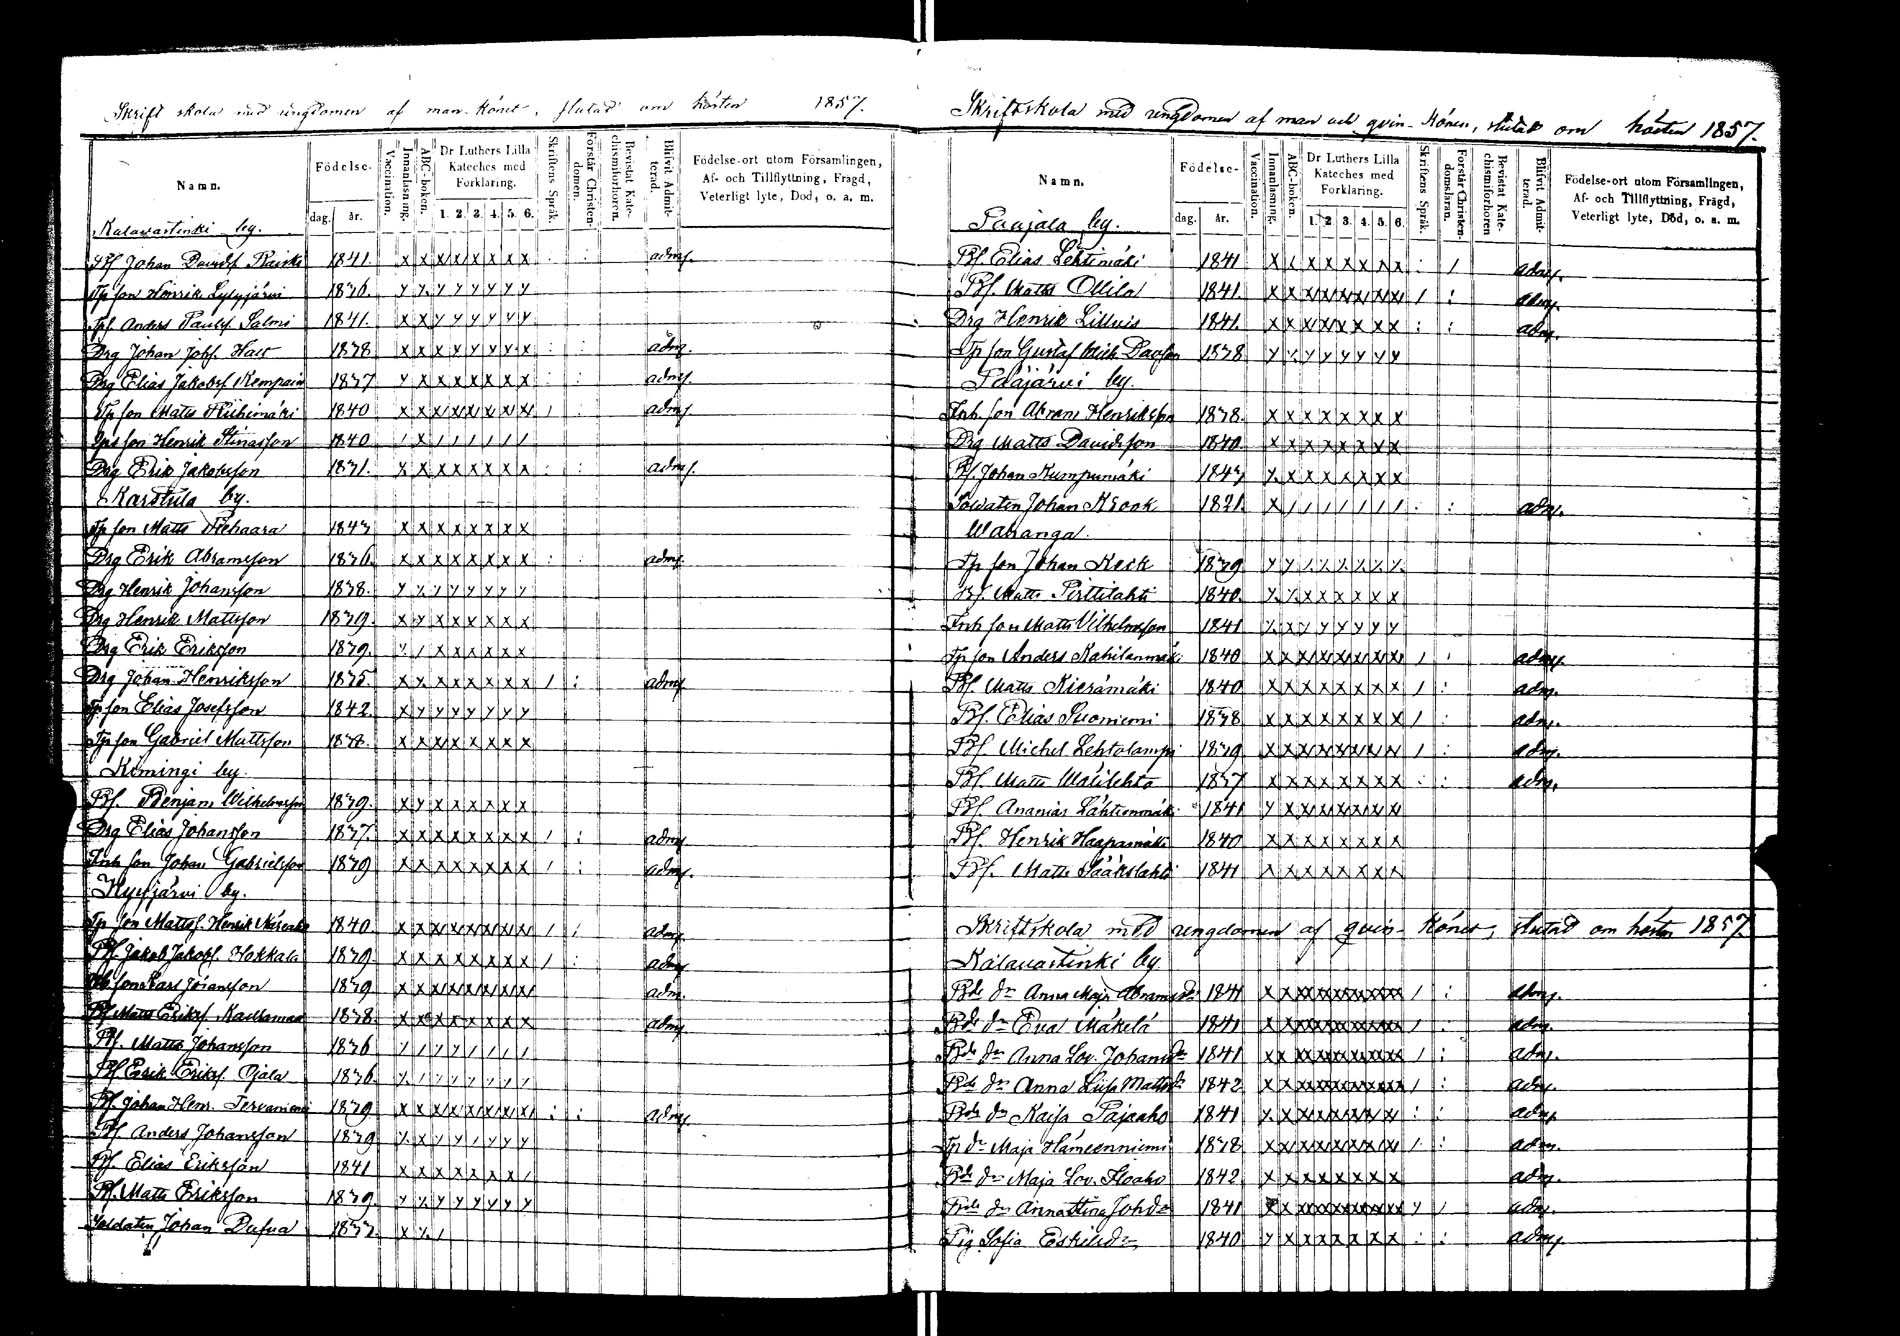 Skriftskola med ungdomen af man-könet, slutad om hösten 1857.
Namn. Födelse- dag. år. Vaccination. Innanläsning. ABC-boken. Dr Luthers Lilla Kateches med Forklaring. 1. 2. 3. 4. 5. 6. Skriftens Språk. Forstår Christendomen. Bevistat Katechismiforhoren. Blifvit Admitterad. Födelse-ort utom Församlingen, Af- och Tillflyttning, Fragd, Veterligt lyte, Dod, o. a. m.
Kalavastinki by.
Bf Johan Davidsf. Raiski 1841. x x x x x x x x : : admf.
Tp son Henrik Lylyjärvi 1836. y y y y y y y y
Tpf. Anders Paulsf. Salmi 1841. x x y y y y y y
Drg Johan Johf. Hall 1838 x x x y y y y x : : admf.
Drg Elias Jakobsf. Kempain 1837 y x x x x x x x : : admf.
Tp son Matts Riihimäki 1840 x x x x x x x x / : admf.
son Henrik Stinasson 1840 / x / / / / / /
Drg Erik Jakobsson 1831. x x x x x x x x : : admf.
Karstula by.
Tp son Matts 1843 x x x x x x x x
Drg Erik Abramsson 1836. x x x x x x x x : : admf.
Drg Henrik Johansson 1838. y y y y y y y y
Drg Henrik Mattsson 1839. x y x x x x x x
Drg Erik Eriksson 1839. y / x x x x x x
Drg Johan Henriksson 1835. x x x x x x x x / : admf.
Tp son Elias Josefsson 1842. x y y y y y y y
Tp son Gabriel Mattsson x x x x x x x x
Kimingi by.
Bf. Benjam Wilhelmsson 1839. x y x x x x x x
Drg Elias Johansson 1837. x x x x x x x x / : admf.
Inh son Johan Gabrielsson 1839 x x x x x x x x / : admf.
Kyyjärvi by.
Tp son Mattsf. Henrik 1840 x x x x x x x x / : admf.
Bf. Jakob Jakobsf. Hokkala 1839 x x x x x x x x / : admf.
son Lars Johansson 1839 x x x x x x x x adm.
Bf Matts Eriksf. 1838. x x x x x x x x admf.
Bf. Matts Johansson 1836 y / y y / / / /
Bf Erik Eriksf. Ojala 1836. y / y y y y y y
Bf. Johan Henr. Tervaniemi 1839 x x x x x x x x : : admf.
Bf. Anders Johansson 1839 y x y y / y y y
Bf. Elias Eriksson 1841 x x x x x x x /
Bf. Matts Eriksson 1839. y y y y y y y y
Soldaten Johan Dufva 1833. x y /
Skriftskola med ungdomen af man och qvin-könen, slutad om hösten 1857.
Namn. Födelse- dag. år. Vaccination. Innanläsning. ABC-boken. Dr Luthers Lilla Kateches med Forklaring. 1. 2. 3. 4. 5. 6. Skriftens Språk. Forstår Christendomsläran. Bevistat Katechismiforhoren Blifvit Admitterad. Födelse-ort utom Församlingen, Af- och Tillflyttning, Frägd, Veterligt lyte, Död, o. a. m.
Paajala by.
Bf. Elias Lehtimäki 1841 x x x x x x x x : / admf.
Bf. Matts Ollila 1841. x x x x x x x x / : admf.
Drg Henrik Lillvis 1841. x x x x x x x x : : adm.
Tp son Gustaf Mich. 1838 y y y y y y y y
Pääjärvi by.
Inh. son Abram Henriksson 1838. x x x x x x x x
Drg Matts Davidsson 1840. x x x x x x x x
Bf. Johan Kumpumäki 1843 x x x x x x x x
Soldaten Johan Kronk 1821. x / / / / / / / : : adm.
Wahanga.
Tp son Johan Keck 1839 y y y y y y y y
Bf. Matts Pirttilahti 1840. y y x x x x x x
Inh son Matts Vilhelmsson 1841 x x y y y y y y
Tp son Anders Kahilanmäki 1840 x x x x x x x x / : admf.
Bf. Matts Kierämäki 1840 x x x x x x x x / : adm.
Bf. Elias Suoniemi 1838 x x x x x x x x / : adm.
Bf. Michel Lehtolampi 1839 x x x x x x x x / : adm.
Bf. Matts 1837 x x x x x x x x : : adm.
Bf. Ananias Lähteenmäki 1841 y x x x x x x x
Bf. Henrik Haapamäki 1840 x x x x x x x x
Bf. Matts Sääkslahti 1841 x x x x x x x x
Skriftskola med ungdomen af qvin-könet, slutad om hösten 1857.
Kalavastinki by.
Bde dr Anna Maja Abramsdr 1841 x x x x x x x x / : admf.
Bde dr Eva Mäkelä 1841 x x x x x x x x / : adm.
Bde dr Anna Lov. Johansdr 1841 x x x x x x x x / : adm.
Bde dr Anna Lisa Mattsdr 1842 x x x x x x x x / : adm.
Bde dr Kaisa Pajaaho 1841 x x x x x x x x : : adm.
Tp dr Maja Hämeenniemi 1838 x x x x x x x x / : adm.
Bde dr Maja Lov. Aloaho 1842 x x x x x x x x adm.
Bde dr Annastina Johdr 1841 x x x x x x x x y / adm.
Pig Sofia Eskilsdr 1840 y x x x x x x x : : admf.